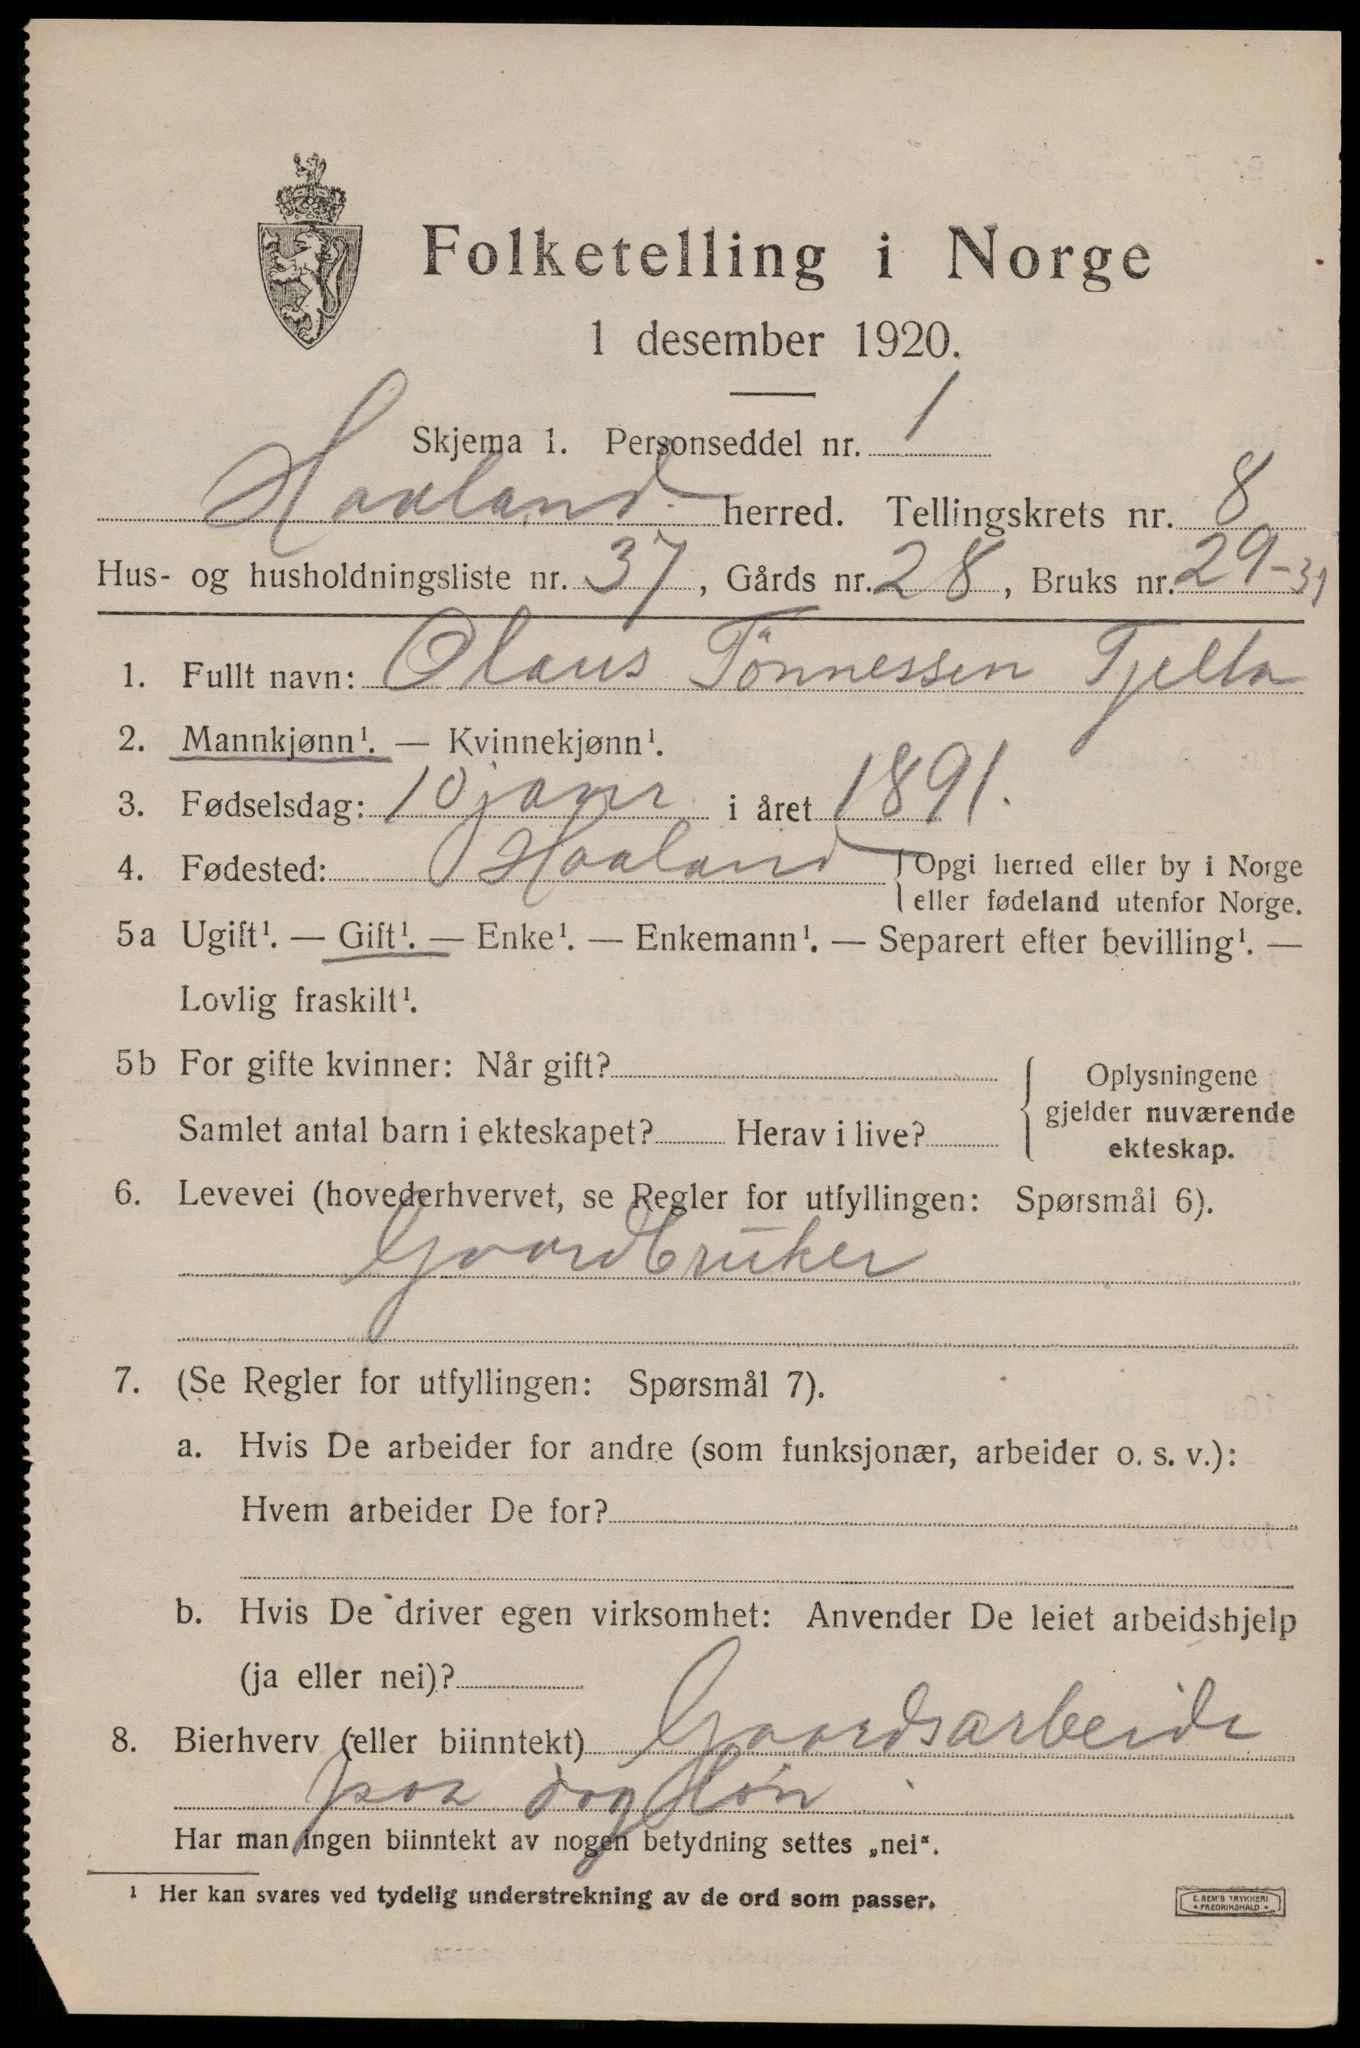 Folketelling i Norge
1 desember 1920.
Skjema 1. Personseddel nr. 1
Haaland herred. Tellingskrets nr. 8
Hus- og husholdningsliste nr. 37, Gårds nr. 28, Bruks nr. 29-31
1. Fullt navn: Olaus Tönnessen Tjelta
2. Mannkjønn¹. — Kvinnekjønn¹.
3. Fødselsdag: 10 janr i året 1891.
4. Fødested: Haaland Opgi herred eller by i Norge
eller fødeland utenfor Norge.
5a Ugift¹. — Gift¹. — Enke¹. — Enkemann¹. — Separert efter bevilling¹. —
Lovlig fraskilt¹.
5b For gifte kvinner: Når gift?
Samlet antal barn i ekteskapet? Herav i live?
Oplysningene
gjelder nuværende
ekteskap.
6. Levevei (hovederhvervet, se Regler for utfyllingen: Spørsmål 6).
Gaardbruker
7. (Se Regler for utfyllingen: Spørsmål 7).
a. Hvis De arbeider for andre (som funksjonær, arbeider o. s. v.):
Hvem arbeider De for?
b. Hvis De driver egen virksomhet: Anvender De leiet arbeidshjelp
(ja eller nei)?
8. Bierhverv (eller biinntekt) Gaardsarbeide
paa dagløn
Har man ingen biinntekt av nogen betydning settes „nei“.
¹ Her kan svares ved tydelig understrekning av de ord som passer.
E. SEM'S TRYKKERI
* FREDRIKSHALD *